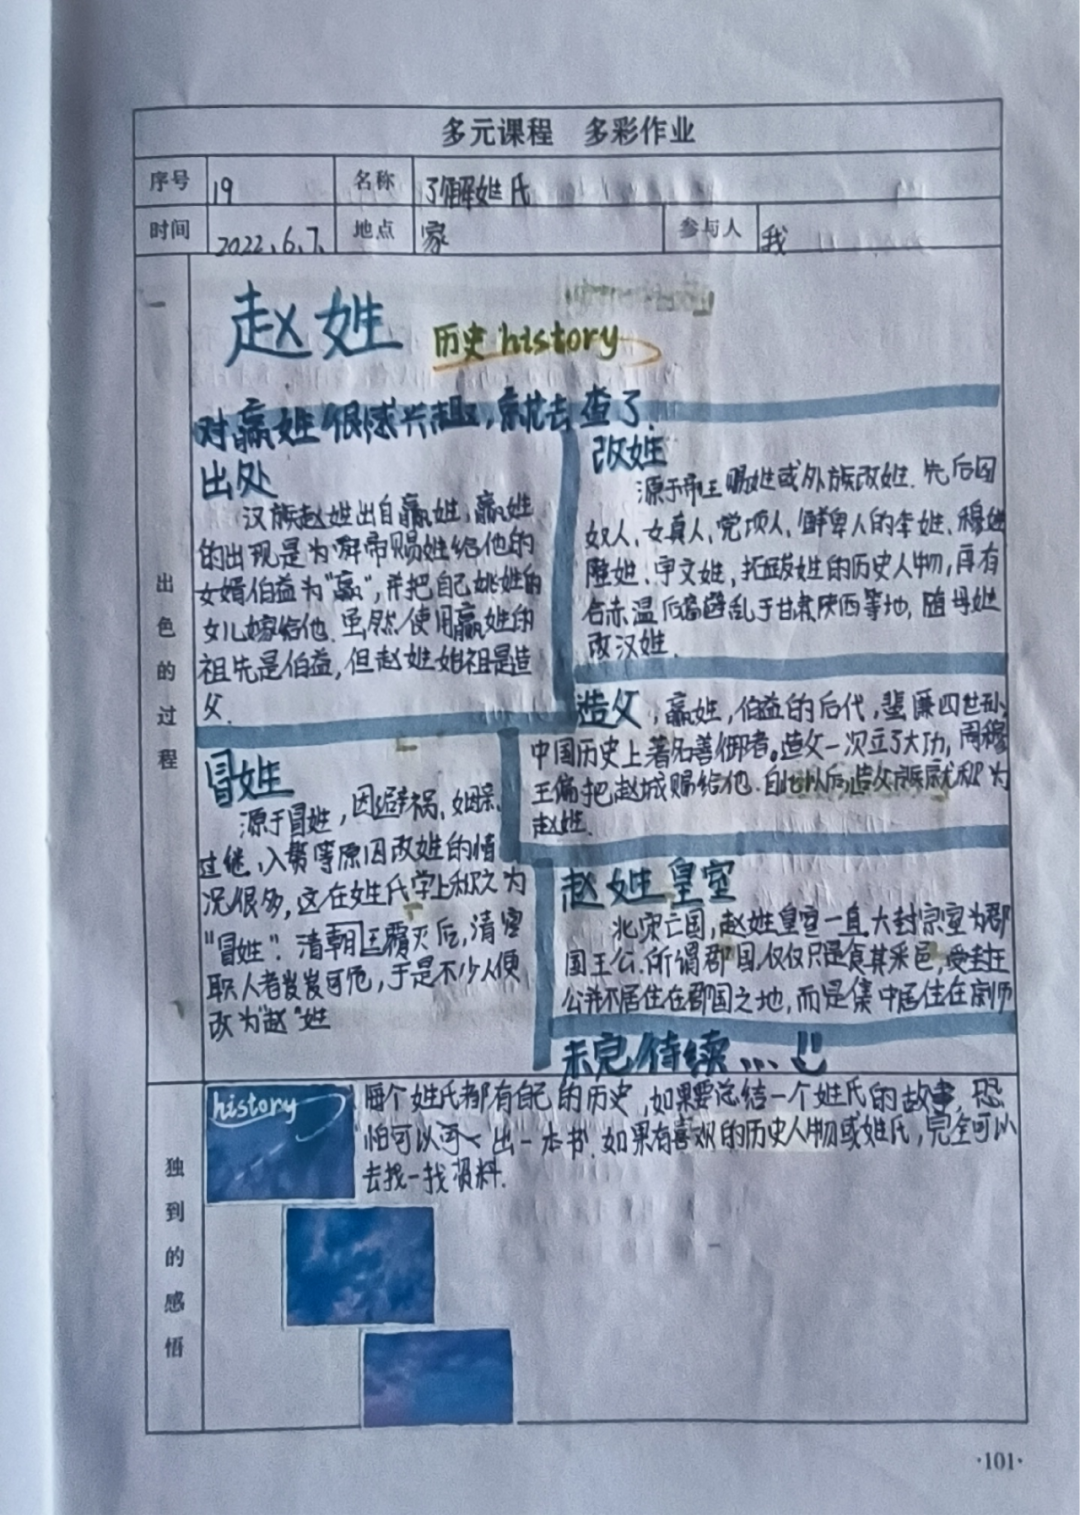 多元课程 多彩作业
序号 19 名称 了解姓氏
时间 2022.6.7. 地点 家 参与人 我
出色的过程
赵姓 历史 history
对嬴姓很感兴趣，就去查了.
出处
汉族赵姓出自嬴姓，嬴姓
的出现是为舜帝赐姓给他的
女婿伯益为“嬴”，并把自己姚姓的
女儿嫁给他. 虽然使用嬴姓的
祖先是伯益，但赵姓始祖是造
父.
改姓
源于帝王赐姓或外族改姓. 先后因
奴人、女真人、党项人、鲜卑人的李姓、穆姓
陆姓、宇文姓，拓跋姓的历史人物，再有
合赤温后裔避乱于甘肃陕西等地，随母姓
改汉姓.
造父，嬴姓，伯益的后代，蜚廉四世孙
中国历史上著名善御者。造父一次立了大功，周穆
王便把赵城赐给他. 自此以后造父族就称为
赵姓.
冒姓
源于冒姓，因避祸、婚姻、
过继、入赘等原因改姓的情
况很多，这在姓氏学上称之为
“冒姓”. 清朝覆灭后，清室
取人者岌岌可危，于是不少人便
改为“赵”姓
赵姓皇室
北宋亡国，赵姓皇室一直大封宗室为郡
国王公. 所谓郡国，仅仅只是食其采邑，受封
公并不居住在郡国之地，而是集中居住在京师
未完待续...
独到的感悟
history
每个姓氏都有自己的历史，如果要总结一个姓氏的故事，恐
怕可以出一本书. 如果有喜欢的历史人物或姓氏，完全可以
去找一找资料.
·101·